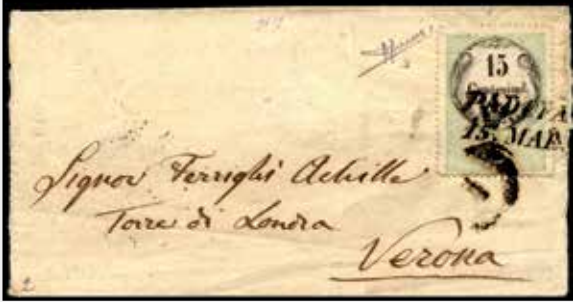 15
PADOVA
15. MAR.
Signor Ferrighi Achille
Torre di Londra
Verona
2